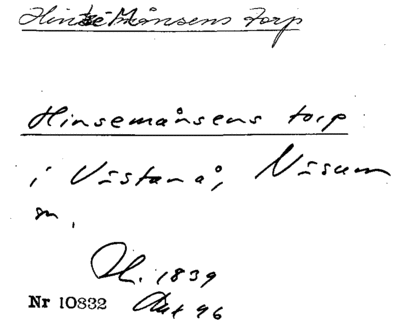 Hinse Månsens torp
Hinsemånsens torp
i Västanå, Näsum
sn.
H. 1839
Nr 10832 Aut 96